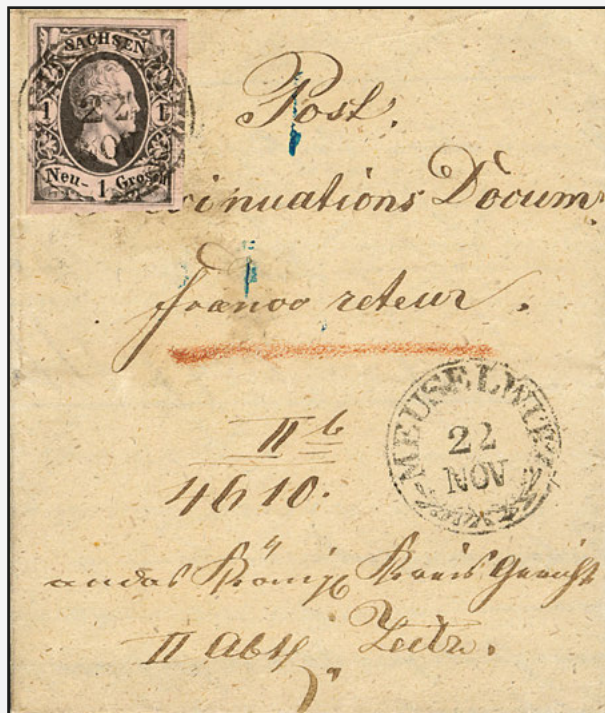 SACHSEN
1 22 1
NOV
Neu- 1 Grosch
Post.
inuations Docum
franco reteur.
MEUSELWITZ
22
NOV
II b
4610.
an das Königl Kreis Gericht
II Abth Zeitz.